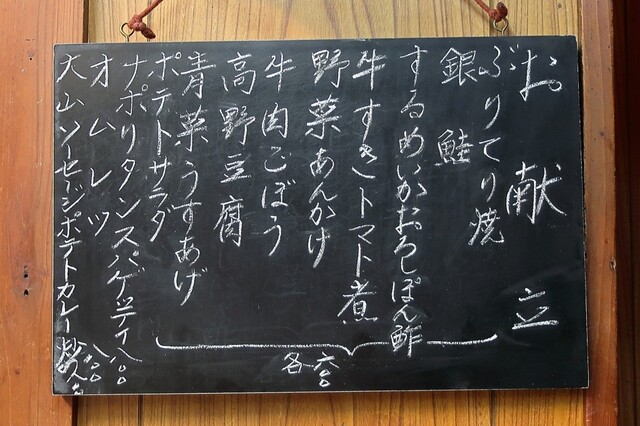 お献立
ぶりてり焼
銀鮭
するめいかおろしぽん酢
牛すきトマト煮
野菜あんかけ
牛肉ごぼう
高野豆腐
青菜うすあげ
ポテトサラダ
各六〇〇
ナポリタンスパゲッティ八〇〇
オムレツ八〇〇
大山ソーセージポテトカレー